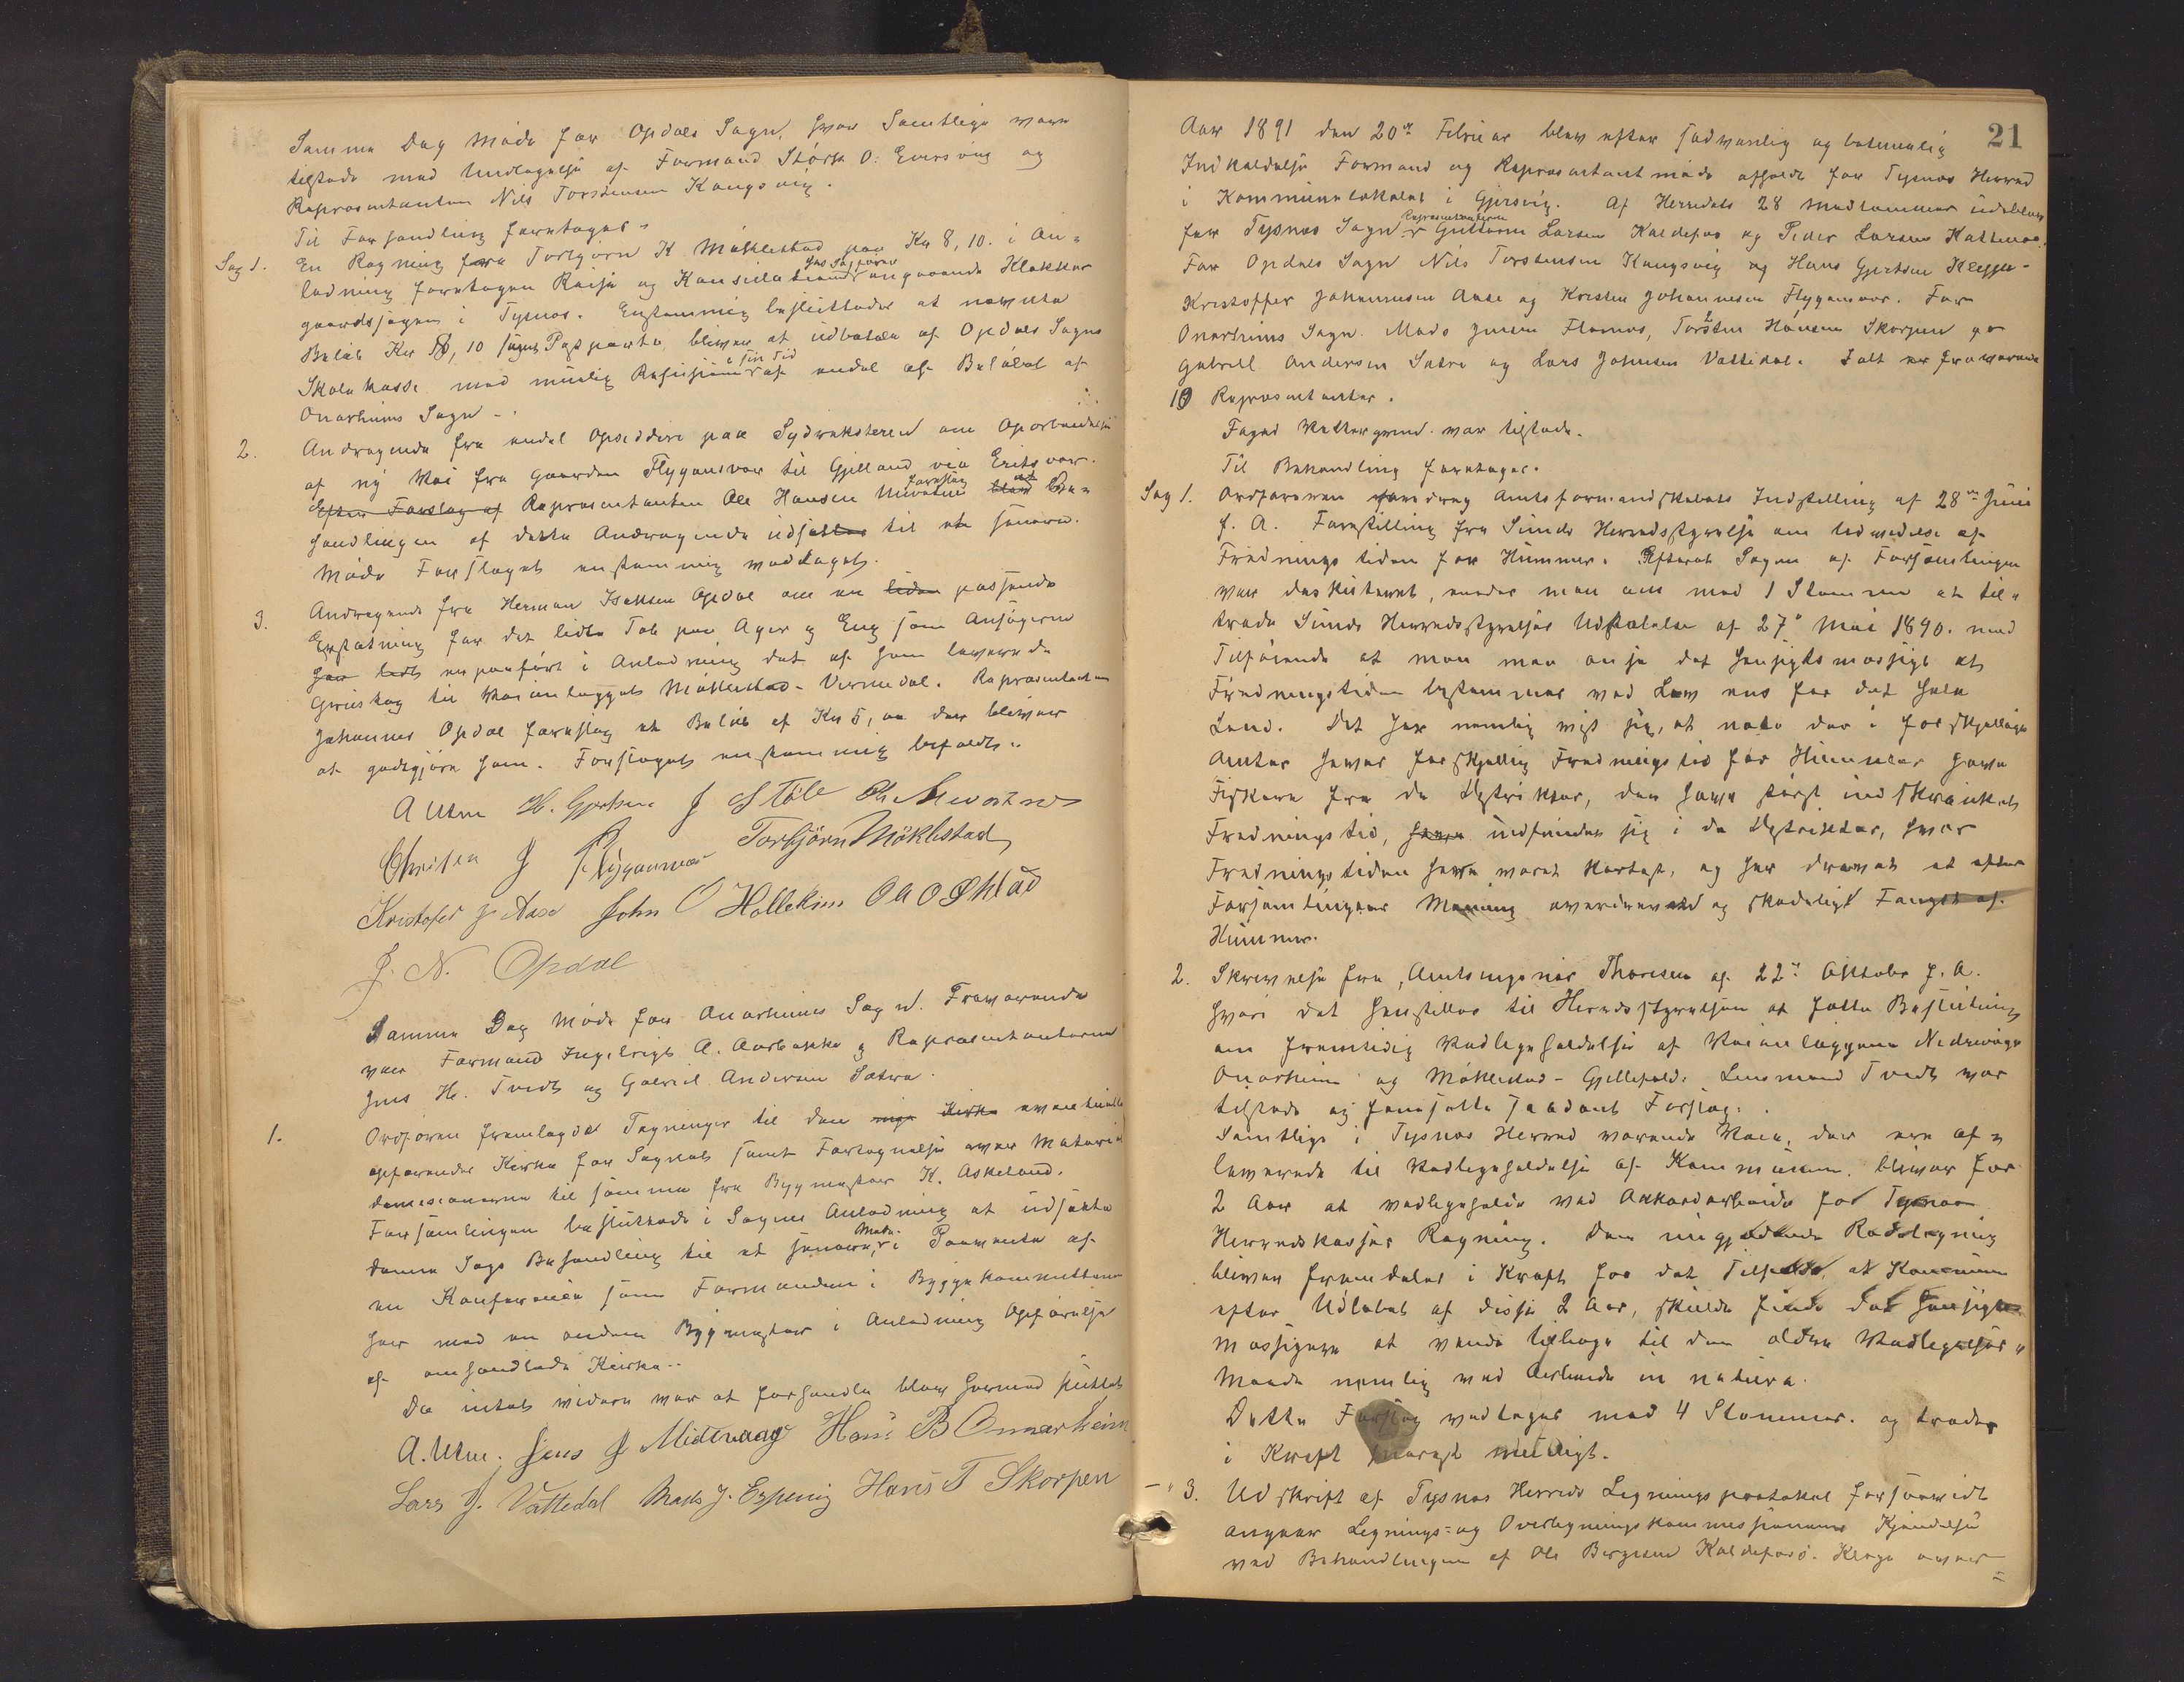 Samme Dag Møde for Opdals Sogn, hvor Samtlige vare
tilstede med Undtagelse af Formand Störk O. Eversvig og
Repræsentanten Nils Torstensen Kongsvig.
Til Forhandling foretoges:
Sag 1. En Regning fra Torbjörn K Möklestad paa Kr 8,10 i An-
ledning foretagen Reise og Konsulation hos Sagförer angaaende Klokker-
gaardssagen i Tysnes. Enstemmig besluttedes at nævnte
Beløb Kr 8,10 bliver at udbetale af Opdals Sogns
Skolekasse med mulig Refusion i sin Tid af endel af Beløbet af
Onarheims Sogn.
2. Andragende fra endel Opsiddere paa Sydvestsiden om Oparbeidelse
af ny Vei fra Gaarden Flygansvær til Gjelland via Eritsvær.
Efter Forslag af Repræsentanten Ole Hansen foreslog at Be-
handlingen af dette Andragende udsættes til et senere
Møde Forslaget enstemmig vedtaget.
3. Andragende fra Herman Isaksen Opdal om en liden passende
Erstatning for det lidte Tab paa Ager og Eng som Ansögeren
har lidt er paaført i Anledning det af ham leverede
Grustag til Veianlægget Möklestad - Vernedal. Repræsentanten
Johannes Opdal foreslog et Beløb af Kr 5,00 der bliver
at godtgjøre ham. Forslaget enstemmig bifaldt.
A Uten H. Gjertsen J Støle
Christen J Flygansvær Torbjörn Möklestad
Kristofer J Aase John O Hollekim Ole O Økland
J. N. Opdal
Samme Dag Møde for Onarheims Sogn. Fraværende
var Formand Ingebrigt A. Aarbakke og Repræsentanterne
Jens H. Tvedt og Gabriel Andersen Sætre.
1. Ordføren fremlagde Tegninger til den nye Kirke eventuelle
opførendes Kirke for Sognet samt Fortegnelse over Materiel
til samme fra Bygmester K. Askeland.
Forsamlingen besluttede i Sagens Anledning at udsætte
denne Sags Behandling til et senere Møde i Paavente af
en Konferance som Formanden i Byggekommitteen
har med en anden Bygmester i Anledning Opførelse
af omhandlede Kirke.
Da intet videre var at forhandle blev hermed sluttet
A. Uten. Jens J Midtvaag Hans B Onnarheim
Lars J. Vattedal Mads J. Espevig Hans T Skorpen
21
Aar 1891 den 20de Februar blev efter sædvanlig og betimelig
Indkaldelse Formand og Repræsentantmøde afholdt for Tysnes Herred
i Kommunelokalet i Gjersvig. Af Herredets 28 Medlemmer udeblev
for Tysnes Sogn Repræsentanterne Guttorm Larsen Kaldefos og Peder Larsen Hatteras.
For Opdals Sogn Nils Torstensen Kongsvig og Hans Gjertsen
Kristoffer Johannesen Aase og Kristen Johannesen Flygansvær. For
Onarheims Sogn Mads Jensen Flornes, Torsten Hansen Skorpen og
Gabriel Andersen Sætre og Lars Johnsen Vattedal. I alt er fraværende
10 Repræsentanter.
Foged Vettergrend var tilstede.
Til Behandling foretoges.
Sag 1. Ordføreren foredrog Amtsformandskabets Indstilling af 28de Juni
f. A. Forestilling fra Sunds Herredsstyrelse om Udvidelse af
Fredningstiden for Hummer. Efterat Sagen af Forsamlingen
var diskuteret, enedes man om med 1 Stemme at til-
træde Sunds Herredsstyrelses Udtalelse af 27de Mai 1890 med
Tilføiende at man maa anse det hensigtsmæssigt at
Fredningstiden bestemmes ved Lov ens for det hele
Land. Det har nemlig vist sig, at naar der i forskjellige
Amter haves forskjellig Fredningstid for Hummer have
Fiskere fra de Distrikter, der have størst indskrænket
Fredningstid, have indfundet sig i de Distrikter, hvor
Fredningstiden have været kortest, og har drevet et efter
Forsamlingens Mening overdrevent og skadeligt Fangst af
Hummer.
2. Skrivelse fra Amtsingeniør Thoresen af 22de Oktober f. A.
hvori det henstilles til Herredsstyrelsen at fatte Beslutning
om fremtidig Vedligeholdelse af Veianlæggene Nedrevåge
Onarheim og Möklestad - Gjellefald. Lensmand Tvedt var
tilstede og fremsatte saadant Forslag.
Samtlige i Tysnes Herred værende Veie, der ere af-
leverede til Vedligeholdelse af Kommunen, bliver for
2 Aar at vedligeholde ved Akkordarbeide for Tysnes
Herredskasses Regning. Den nugjældende Rodelegning
bliver fremdeles i Kraft for det Tilfælde, at Kommunen
efter Udløbet af disse 2 Aar, skulde finde det hensigts-
mæssigere at vende tilbage til den ældre Vedligeholdelses-
Maade nemlig ved Arbeide in natura.
Dette Forslag vedtoges med 4 Stemmer og træder
i Kraft snarest muligt.
3. Udskrift af Tysnes Herreds Ligningsprotokol forsaavidt
angaar Lignings- og Overligningskommissionens Kjendelse
ved Behandlingen af Ole Bergesen Kaldefoss Klage over